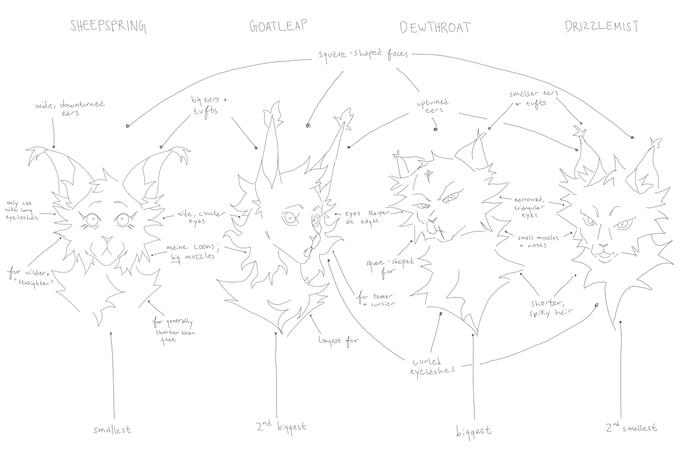 SHEEPSPRING
GOATLEAP
DEWTHROAT
DRIZZLEMIST
square-shaped faces
wide, downturned
ears
big ears +
tufts
upturned
ears
smaller ears
+ tufts
only cat
with long
eyelashes
wide, circular
eyes
eyes sharper
at edges
narrowed,
triangular
eyes
maine coons;
big muzzles
small muzzles
+ noses
fur wilder +
"straighter"
square-shaped
fur
fur generally
shorter than
fur tamer
+ curlier
shorter,
spiky hair
longest fur
curled
eyelashes
smallest
2nd biggest
biggest
2nd smallest